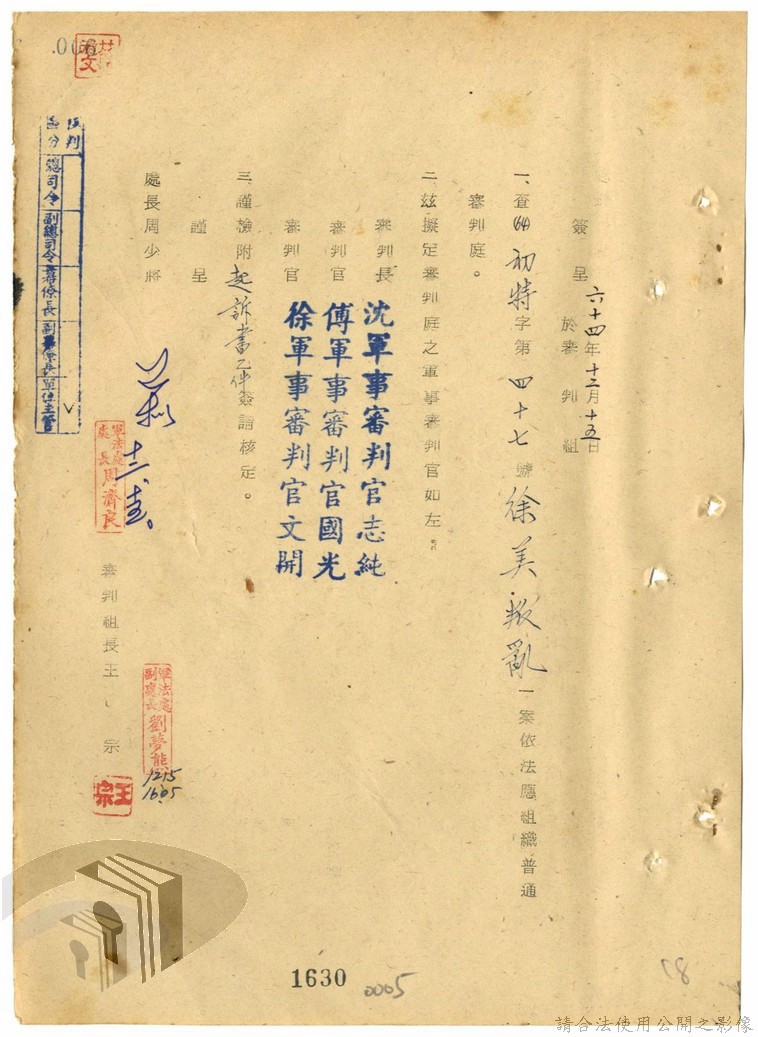 簽呈
六十四年十二月十五日
於審判組
一、查64初特字第四十七號徐美叛亂一案依法應組織普通
審判庭。
二、茲擬定審判庭之軍事審判官如左：
審判長 沈軍事審判官志純
審判官 傅軍事審判官國光
審判官 徐軍事審判官文開
三、謹檢附起訴書乙件簽請核定。
謹呈
處長周少將
審判組長王 宗
王宗
軍法處副處長劉夢熊
1215
1605
軍法處處長周濟良
區分
總司令
副總司令
參謀長
副參謀長
單位主管
1630
0005
請合法使用公開之影像